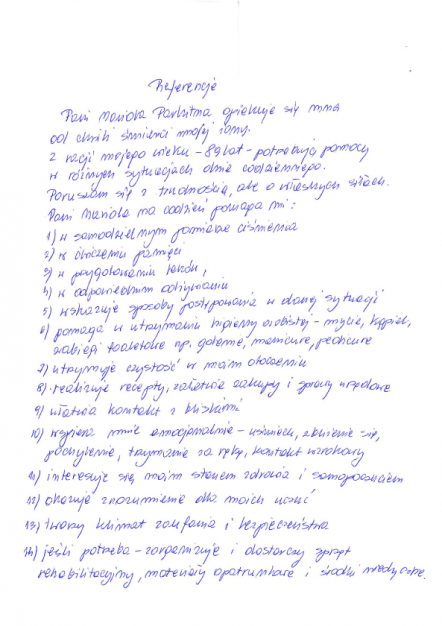 Referencje
Pani Mariola opiekuje się mną
od chwili śmierci mojej żony.
Z racji mojego wieku - 89 lat - potrzebuję pomocy
w różnych sytuacjach dnia codziennego.
Poruszam się z trudnością, ale o własnych siłach.
Pani Mariola na codzień pomaga mi:
1) w samodzielnym pomiarze ciśnienia
2) w ćwiczeniu pamięci
3) w przygotowaniu leków,
4) w odpowiednim odżywianiu
5) wskazuje sposoby postępowania w danej sytuacji
6) pomaga w utrzymaniu higieny osobistej - mycie, kąpiel,
zabiegi toaletowe np. golenie, manicure, pedicure
7) utrzymuje czystość w moim otoczeniu
8) realizuje recepty, załatwia zakupy i sprawy urzędowe
9) ułatwia kontakt z bliskimi
10) wspiera mnie emocjonalnie - uśmiech, zbliżenie się,
pochylenie, trzymanie za rękę, kontakt wzrokowy
11) interesuje się moim stanem zdrowia i samopoczuciem
12) okazuje zrozumienie dla moich uczuć
13) tworzy klimat zaufania i bezpieczeństwa
14) jeśli potrzeba - zorganizuje i dostarczy sprzęt
rehabilitacyjny, materiały opatrunkowe i środki medyczne.